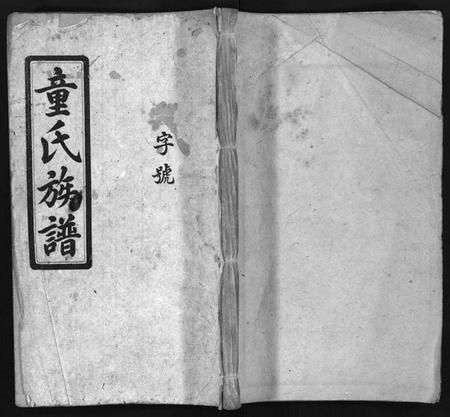 字號
童氏族譜